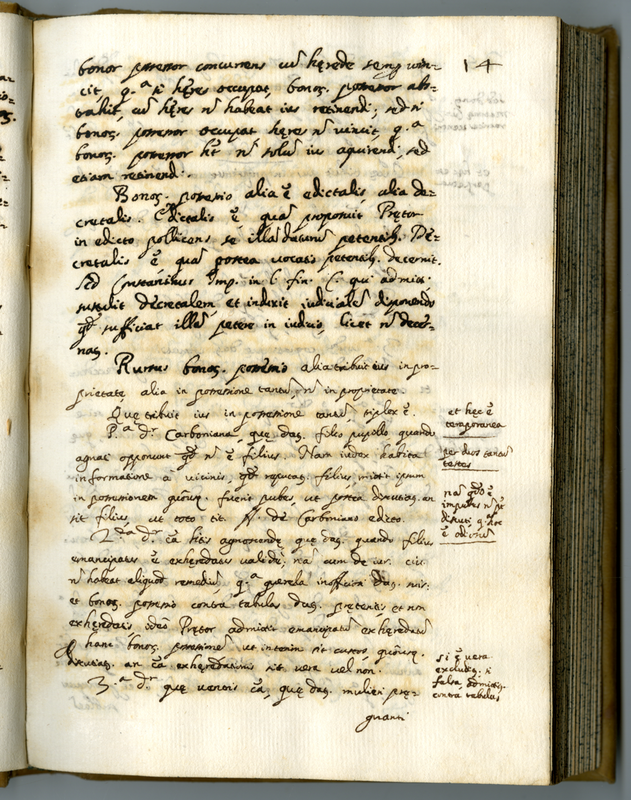 14
bonor possessor concurrens cũ hęrede semp vin-
cit q.ª si hęres occupat, bonoȝ. possessor abs-
trahit, cũ hęres nõ habeat ius retinendi, sed si
bonoȝ. possessor occupat hęres nõ vincit, q.ª
bonoȝ. possessor ht nõ solũ ius aquirendi, sed
etiam retinendi.
Bonoȝ. possessio alia ẽ edictalis alia de-
cretalis. Edictalis ẽ quã proponit Prętor
in edicto pollicens se illã daturũ petentib. De-
cretalis ẽ quã postea vocatis petentib. decernit.
Sed Constantinus Imp. in l. fin. C. qui admitt.
sustulit decretalem, et induxit iudicialẽ disponendo
qđ sufficiat illã petere in iudicio licet nõ decer-
nat.
Rursus bonoȝ. possessio alia tribuit ius in pro-
prietate alia in possessione tantũ, nõ in proprietate
Quę tribuit ius in possessione tantũ, triplex ẽ.
P.ª dr Carboniana, quę dat. filio pupillo quando
agnati opponunt qđ nõ ẽ filius. Nam iudex habita
informatione a vicinis, qđ reputat. filius mittit ipsum
in possessionem quousq. fuerit pubes, ut postea discutiat. an
sit filius, ut toto tit. ff. de Carboniano edicto.
2.ª dr cã litis agnoscendę quę dat. quando filius
emancipatus ẽ exhęredatus validè, nã cum de iur. civ.
nõ habeat aliquod remediũ, q.ª querela inofficiosi dat. suis,
et bonoȝ. possessio contra tabulas dat. pręteritis et non
exhęredatis ideò Prętor admittit emancipatũ exhęredatũ
hanc bonoȝ. possessione ut interim sit custos quousq.
discutiat. an cã exhęredationis sit vera vel non.
3.ª dr quę ventris cã, quę dat. mulieri pręg-
gnanti
et hęc ẽ
temporanea
per duos tantũ
testes
impubes nõ
si ẽ vera
excludit. si
falsa, admittit.
contra tabulas